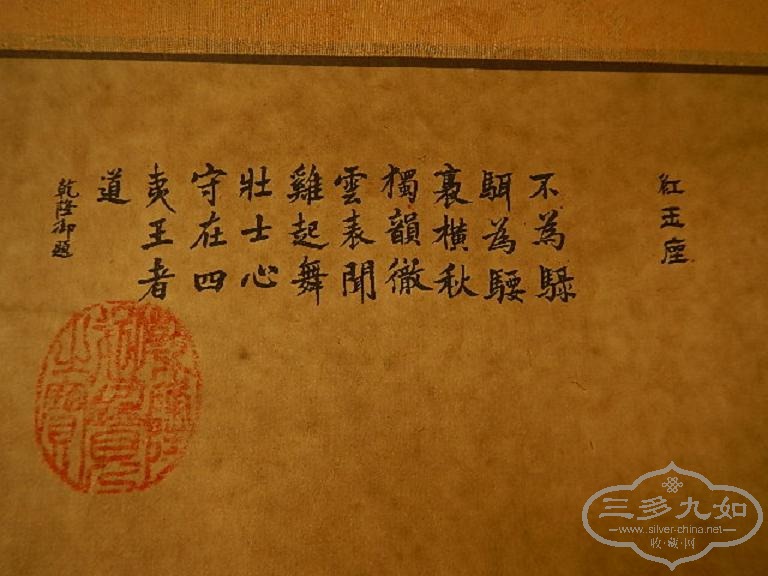 紅玉座
不為騄
駬為騕
褭橫秋
獨韻徹
雲表聞
雞起舞
壯士心
守在四
夷王者
道
乾隆御題
乾隆
御覽
之寶
三多九如
www.silver-china.net
收·藏·网